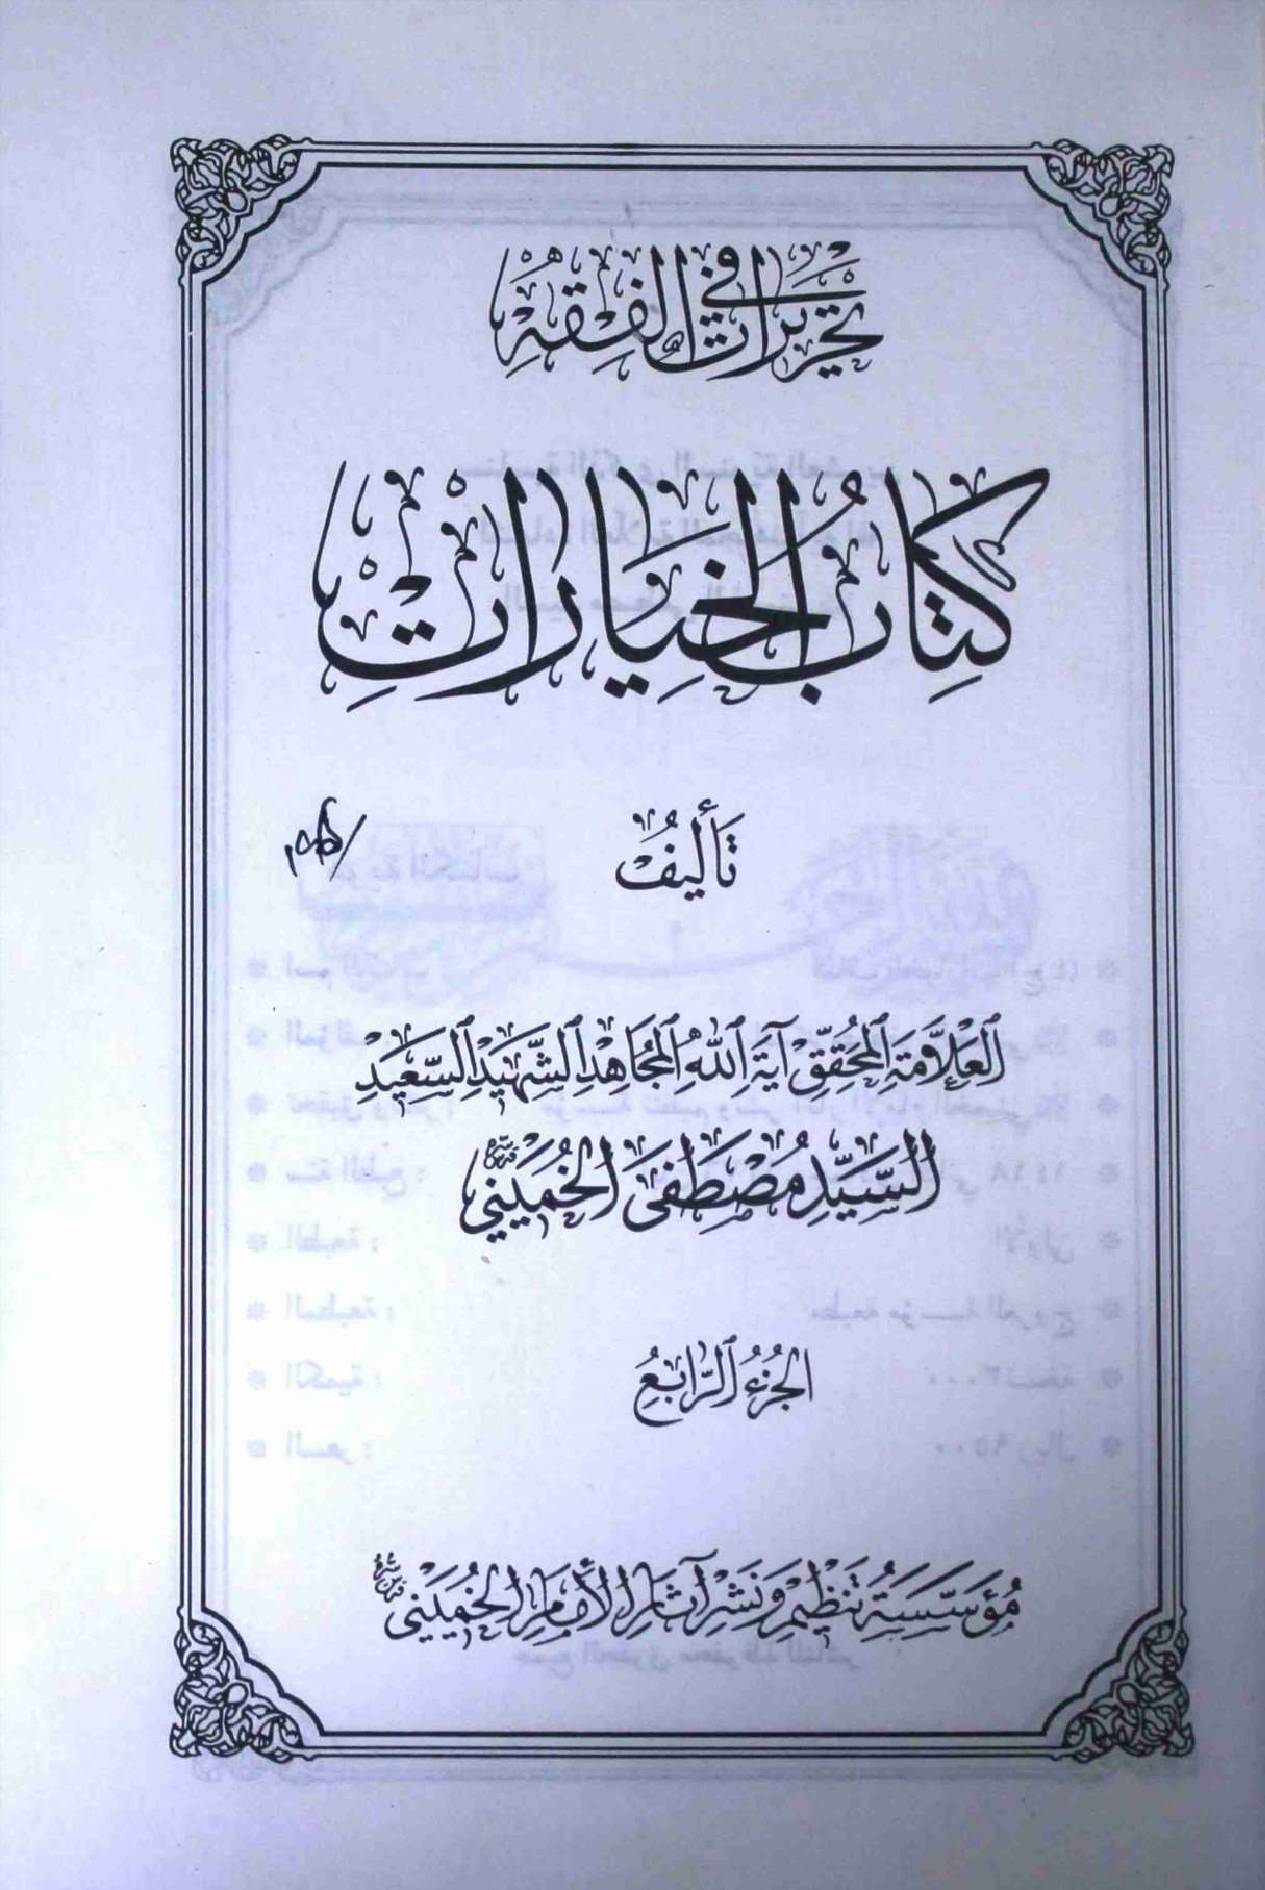 تحريرات في الفقه
كتاب الخيارات
تأليف
العلامة المحقق آية الله المجاهد الشهيد السعيد
السيد مصطفى الخميني
الجزء الرابع
مؤسسة تنظيم ونشر آثار الإمام الخميني